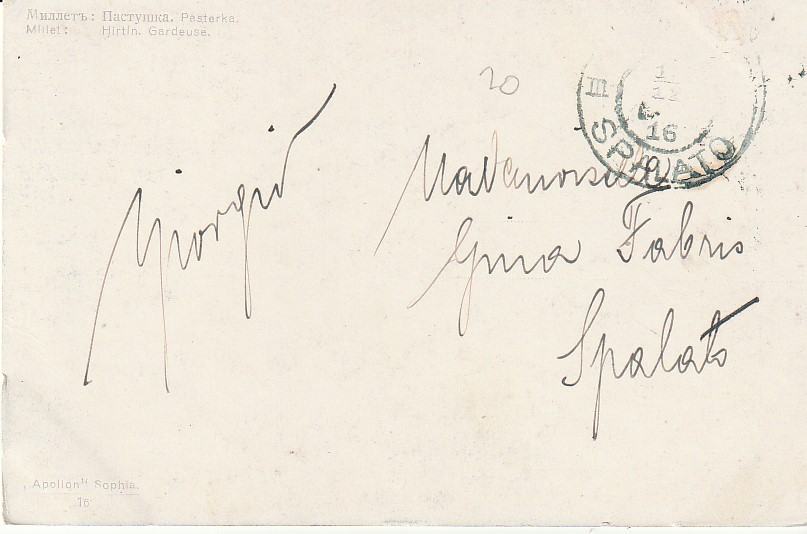 Миллетъ: Пастушка. Pasterka.
Millet: Hirtin. Gardeuse.
20
III
16
SPALATO
Giorgio
Gina Fabris
Spalato
„Apollon" Sophia.
16